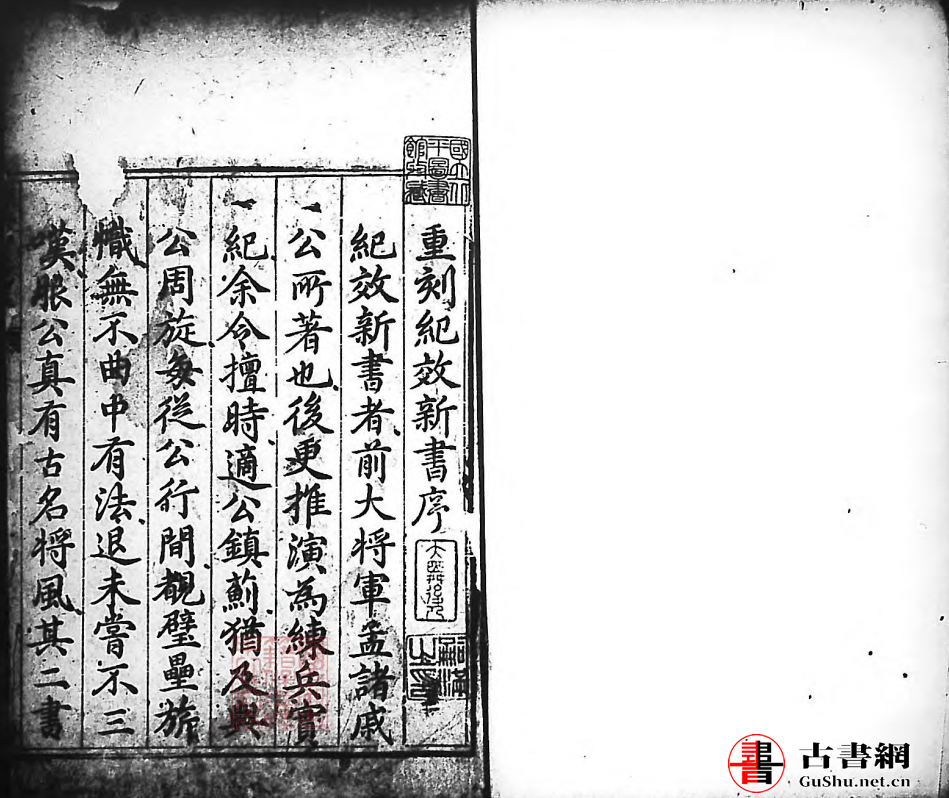 國立北平圖書館收藏
重刻紀效新書序
紀效新書者前大将軍孟諸戚
公所著也後更推演為練兵實
紀余令擅時適公鎮薊猶及與
公周旋每從公行間覩壁壘旂
幟無不曲中有法退未嘗不三
嘆服公真有古名将風其二書
書
古書網
GuShu.net.cn